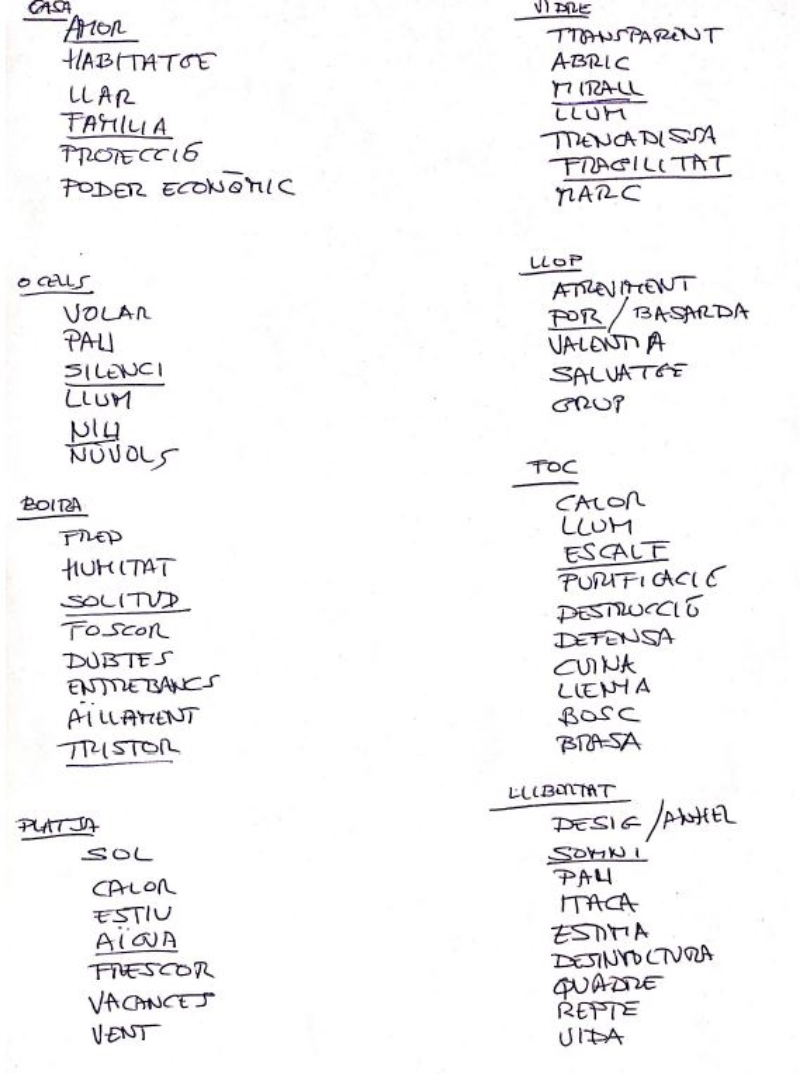 CASA
AMOR
HABITATGE
LLAR
FAMILIA
PROTECCIÓ
PODER ECONÒMIC
OCELLS
VOLAR
PAU
SILENCI
LLUM
NIU
NÚVOLS
BOIRA
FRED
HUMITAT
SOLITUD
FOSCOR
DUBTES
ENTREBANCS
AÏLLAMENT
TRISTOR
PLATJA
SOL
CALOR
ESTIU
AÏGUA
FRESCOR
VACANCES
VENT
VIDRE
TRANSPARENT
ABRIC
MIRALL
LLUM
TRENCADISSA
FRAGILITAT
MARC
LLOP
ATREVIMENT
POR / BASARDA
VALENTIA
SALVATGE
GRUP
FOC
CALOR
LLUM
ESCALF
PURIFICACIÓ
DESTRUCCIÓ
DEFENSA
CUINA
LLENYA
BOSC
BRASA
LLIBERTAT
DESIG / ANHEL
SOMNI
PAU
ITACA
ESTIMA
DESINVOLTURA
QUADRE
REPTE
VIDA